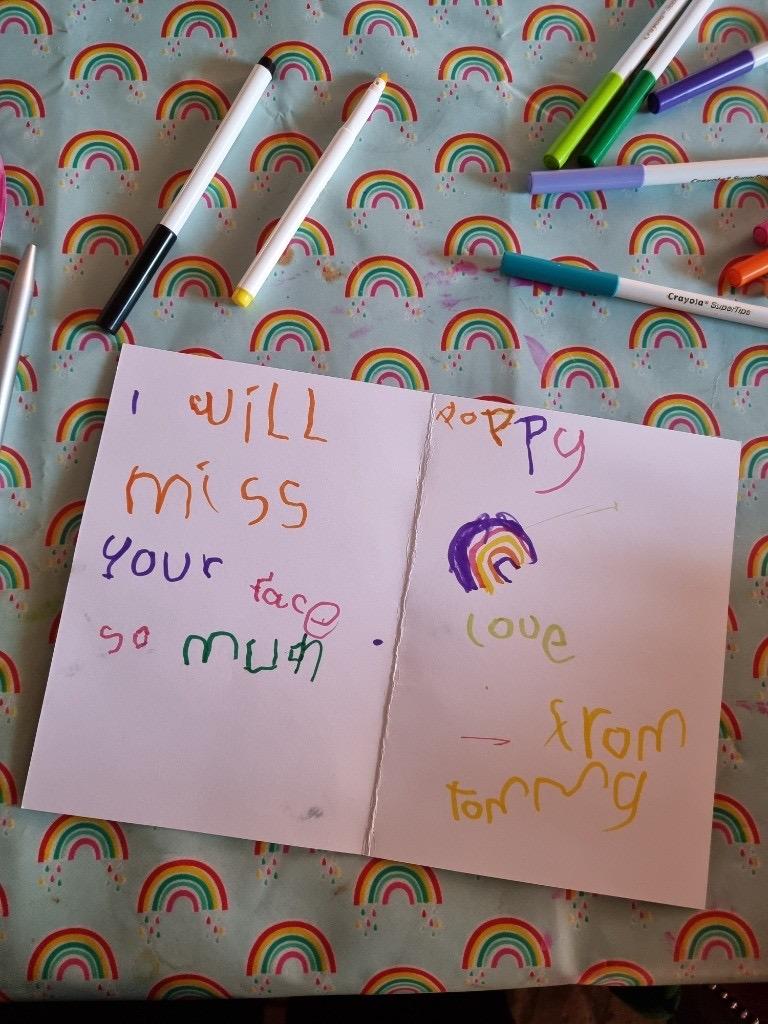 I WiLL
miss
your face
so much
poppy
love
from
tommy
Crayola SuperTips